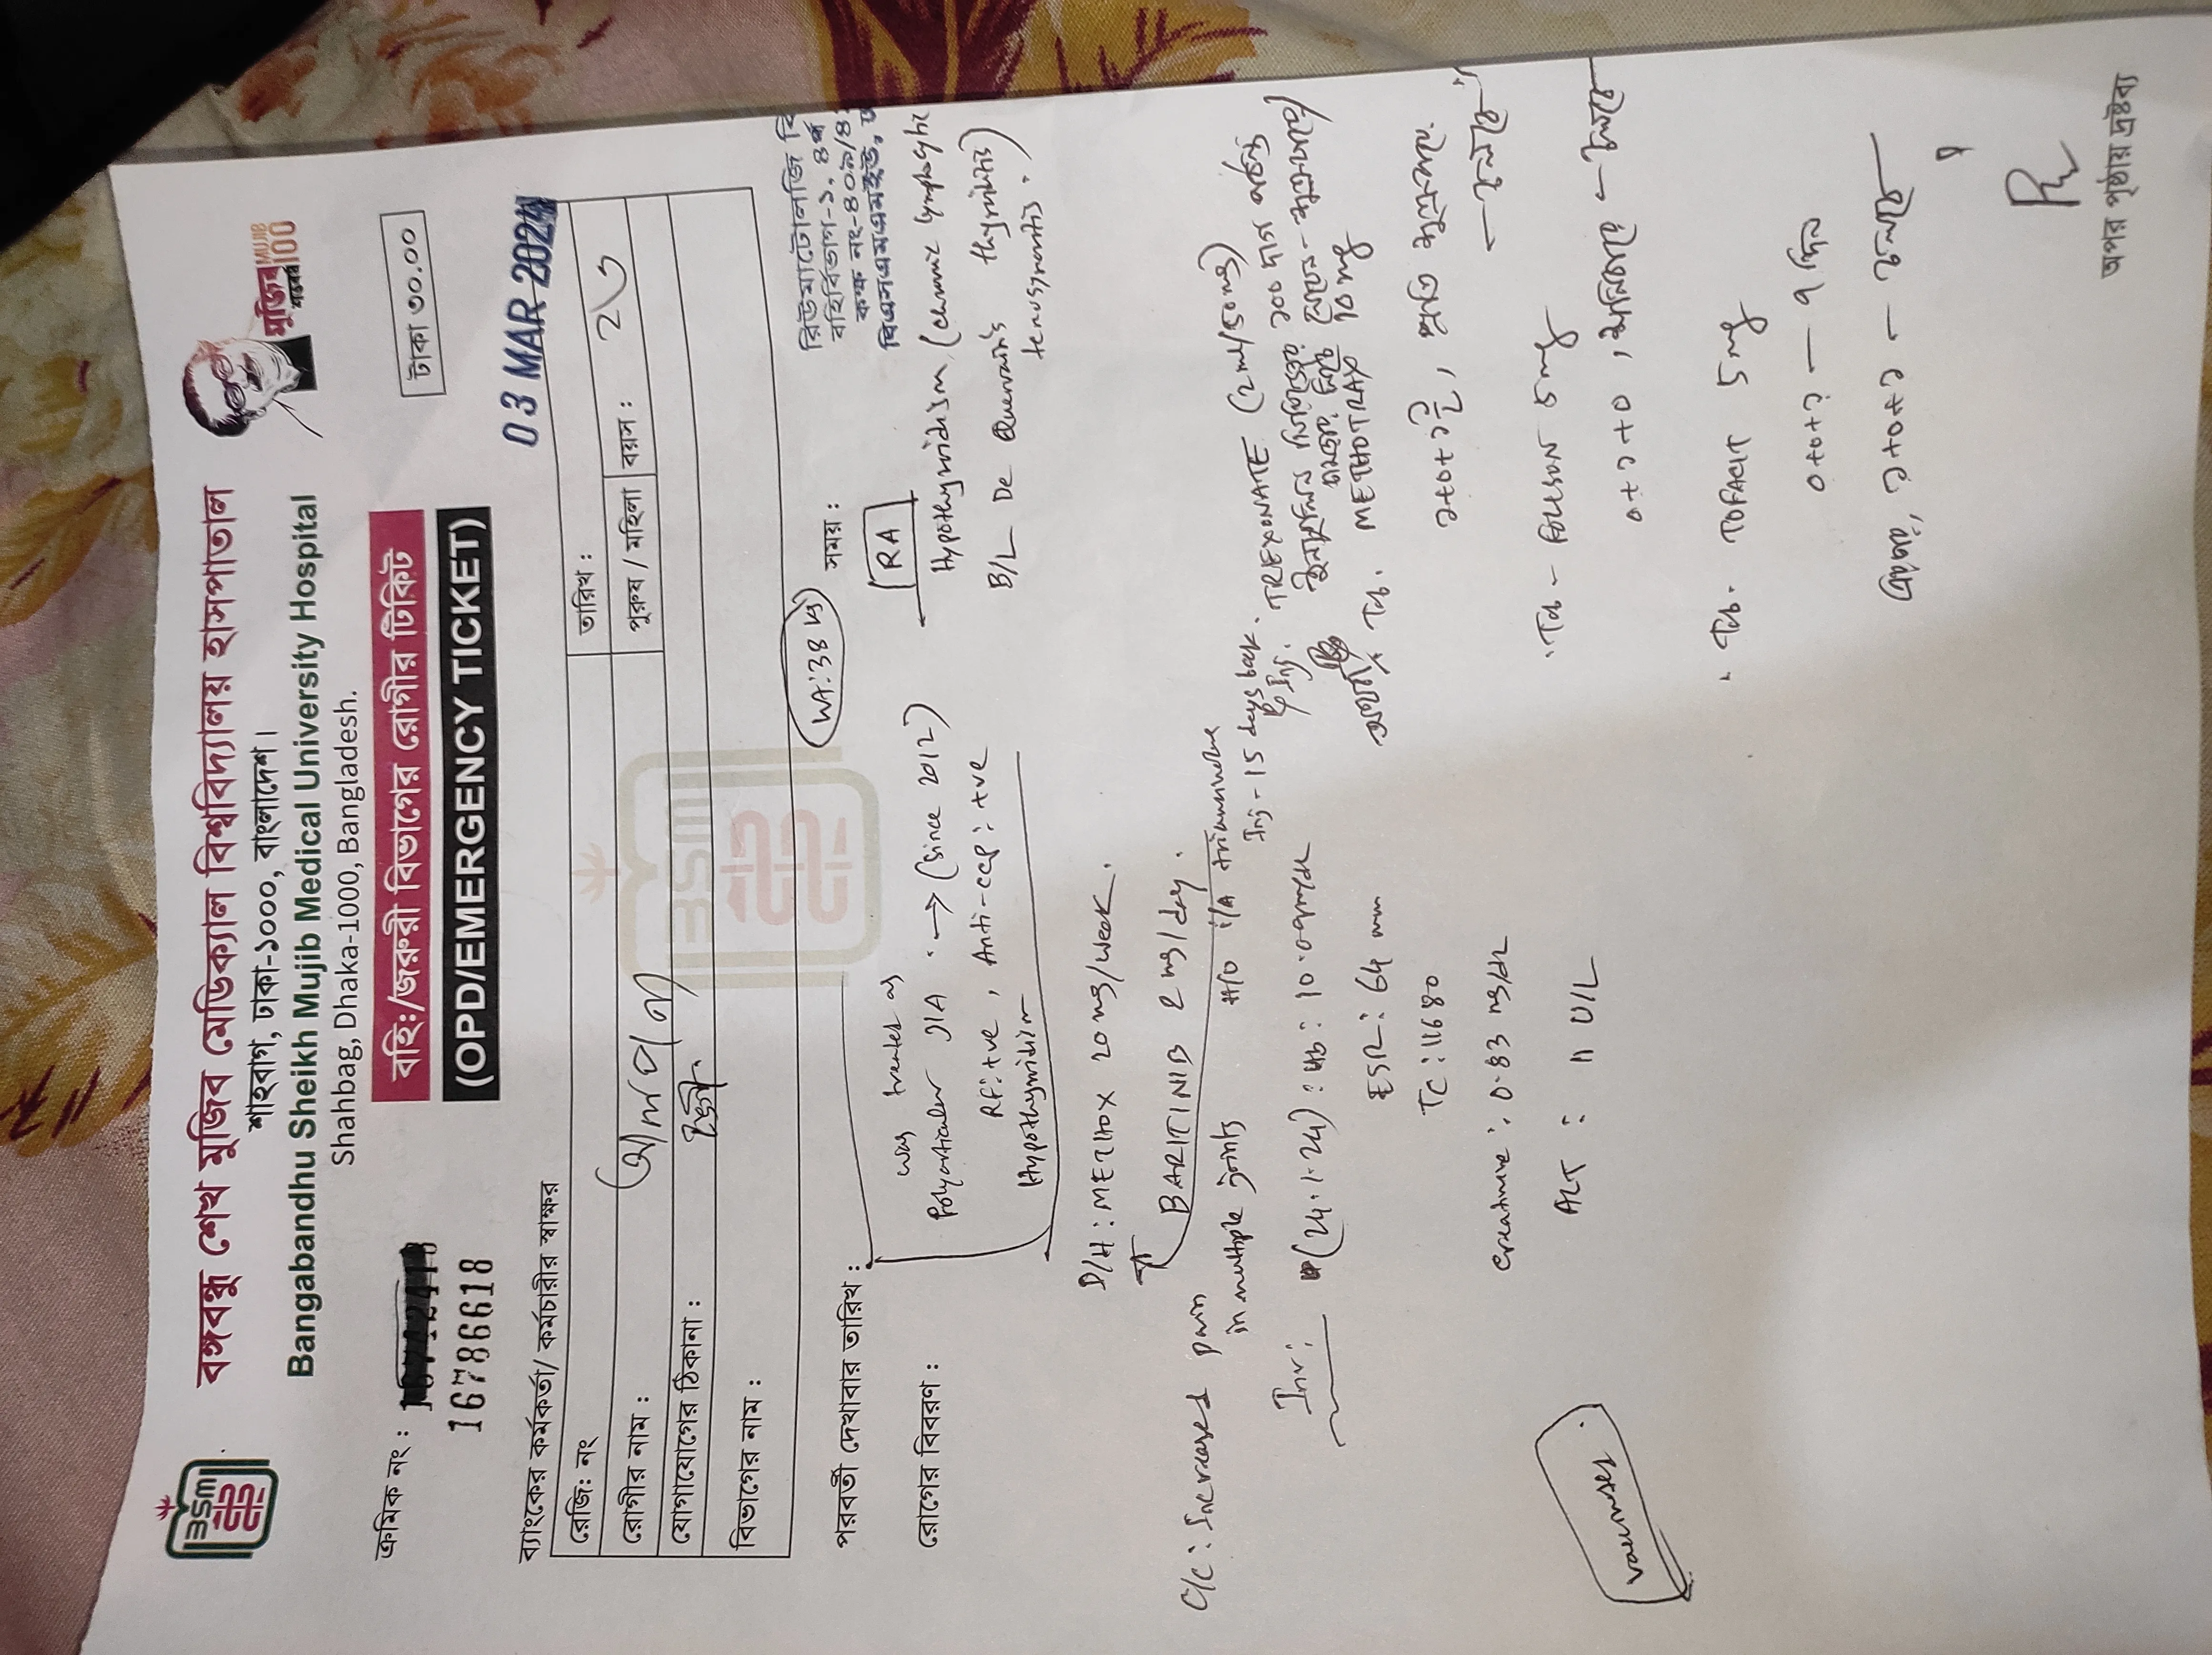 বঙ্গবন্ধু শেখ মুজিব মেডিক্যাল বিশ্ববিদ্যালয় হাসপাতাল
শাহবাগ, ঢাকা-১০০০, বাংলাদেশ।
Bangabandhu Sheikh Mujib Medical University Hospital
Shahbag, Dhaka-1000, Bangladesh.
মুজিব শতবর্ষ MUJIB 100
BSM
ক্রমিক নং :
16786618
বহি:/জরুরী বিভাগের রোগীর টিকিট
(OPD/EMERGENCY TICKET)
টাকা ৩০.০০
03 MAR 2024
ব্যাংকের কর্মকর্তা/ কর্মচারীর স্বাক্ষর
রেজি: নং
তারিখ :
রোগীর নাম :
পুরুষ / মহিলা
বয়স :
যোগাযোগের ঠিকানা :
বিভাগের নাম :
পরবর্তী দেখাবার তারিখ :
WA: 38
সময় :
রিউম্যাটোলজি বি
বহির্বিভাগ-১, ৪র্থ
কক্ষ নং-৪০৯/৪
বিএসএমএমইউ,
রোগের বিবরণ :
was treated as
Polyarticular JIA → (since 2012)
RF: +ve, Anti-CCP: +ve
Hypothyroidism
RA
Hypothyroidism (chronic lymphocytic thyroiditis)
B/L De Quervain's tenosynovitis.
D/H: METHOX 20 mg/week.
BARITINIB 2 mg/day.
C/C: Increased pain in multiple joints
H/O i/A triamcinolone Inj - 15 days back.
Inv: (24.1.24): Hb: 10.0 gm/dL
ESR: 64 mm
TC: 11680
Creatinine: 0.83 mg/dL
ALT: 11 U/L
Vaccines
Inj. TREXONATE (2ml/50mg)
অথবা
Tab. METHOTRAX 10 mg
১+০+১, প্রতি শুক্রবার
- চলবে
Tab - FOLISON 5 mg
০+১+০, শনিবার - চলবে
Tab. TOFACIT 5 mg
০+০+১ - ৭ দিন
এরপর, ১+০+১ - চলবে
অপর পৃষ্ঠায় দ্রষ্টব্য